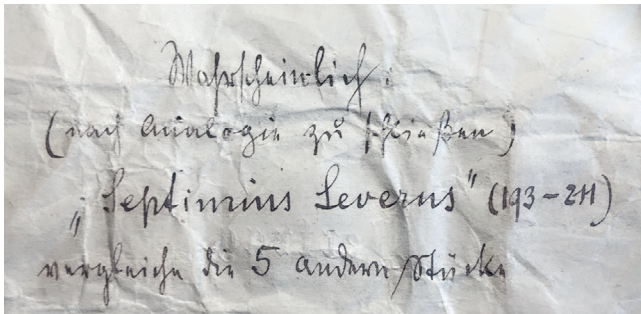 Wahrscheinlich:
(nach Analogie zu schließen)
„Septimius Severus" (193-211)
vergleiche die 5 andern Stücke